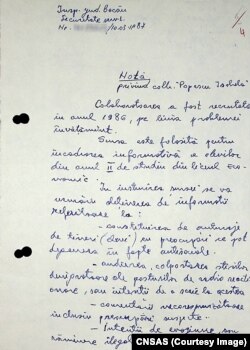 Insp. jud. Bacău
Securitate
Nr. /10.03.1987
1/4
Notă
privind colb. "Popescu Isabela"
Colaboratoarea a fost recrutată
în anul 1986, pe linia problemei
învățămînt.
Sursa este folosită pentru
încadrarea informativă a elevilor
din anul II de studiu din liceul Eco-
nomic.
În instruirea sursei se va
urmări obținerea de informații
referitoare la:
- constituirea de anturaje
de tineri (elevi) cu preocupări ce pot
degenera în fapte antisociale.
- audierea, colportarea știrilor
denigratoare ale posturilor de radio reacți-
onare, sau intenții de a scrie la acestea
- comentarii necorespunzătoare
inclusiv preocupări suspecte.
- Intenții de evaziune, sau
rămînere ilegală
CNSAS (Courtesy Image)